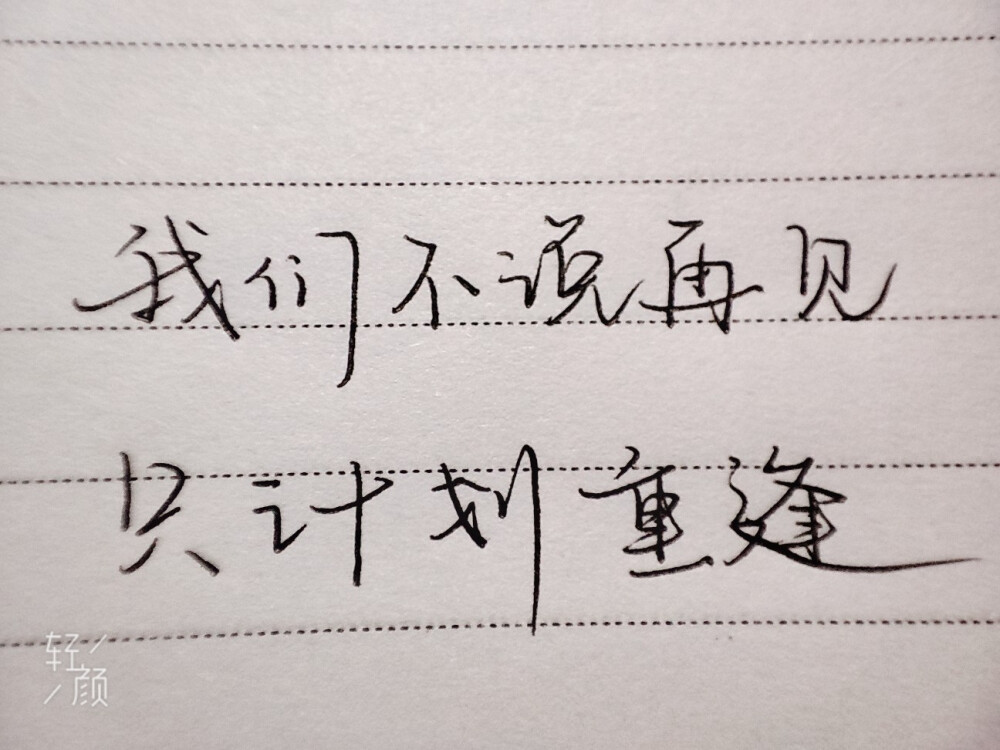 我们不说再见
只计划重逢
轻
颜